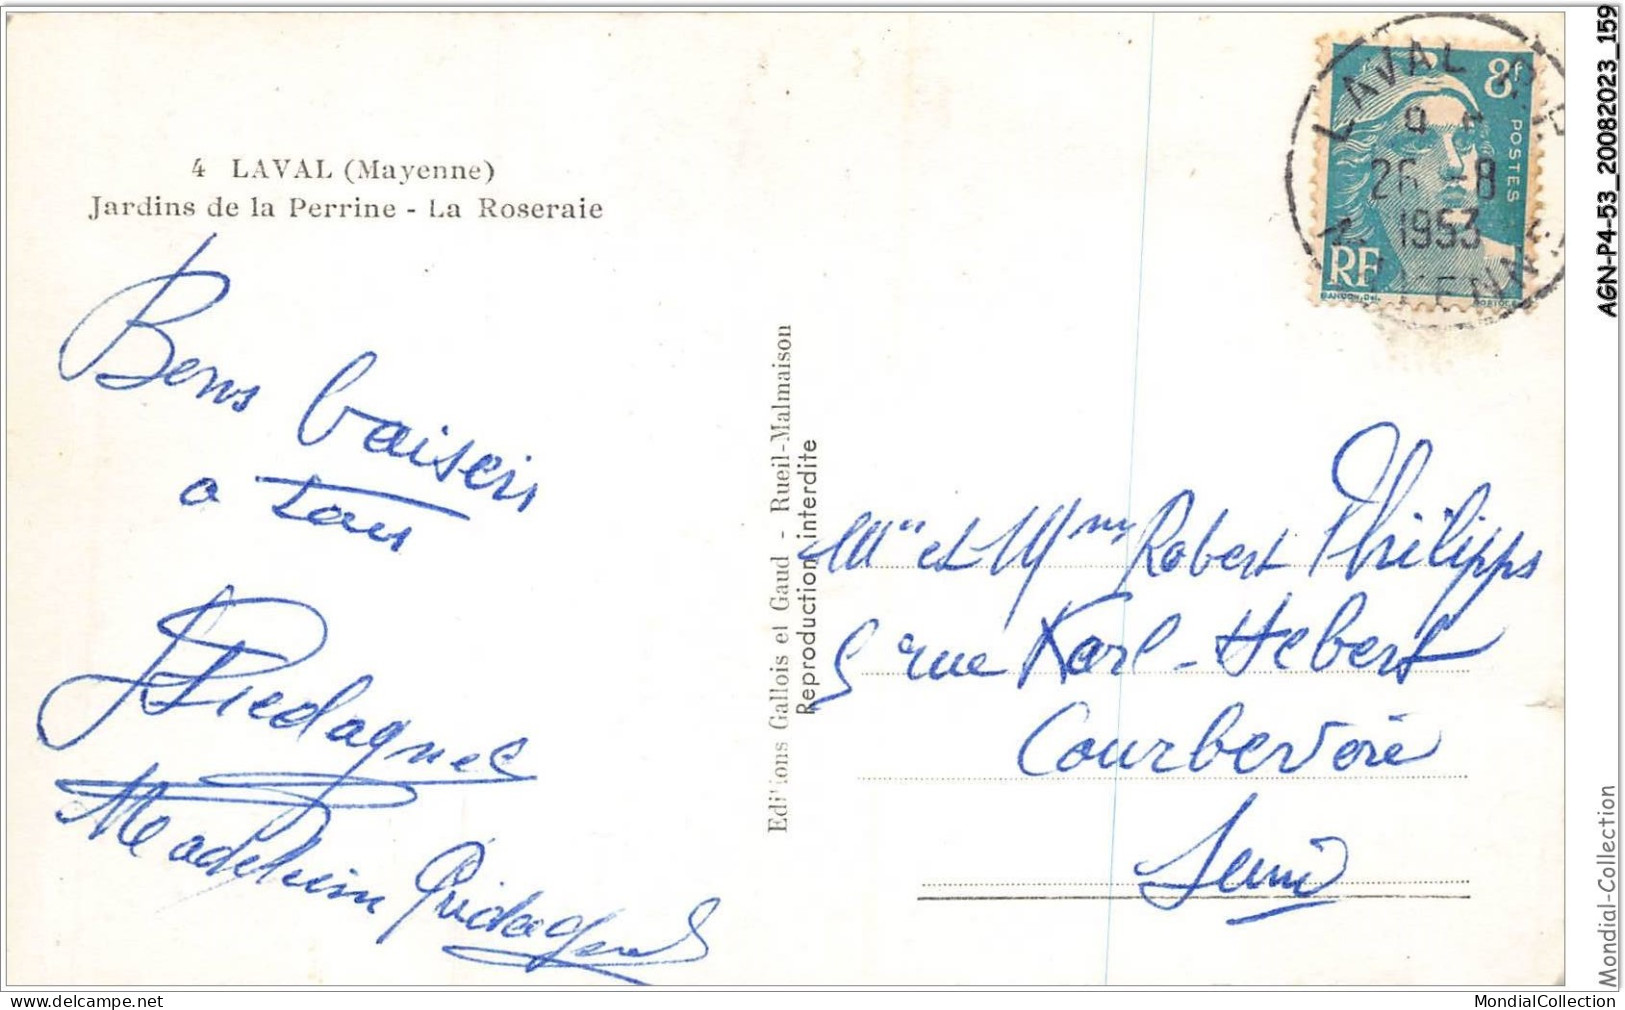 4 LAVAL (Mayenne)
Jardins de la Perrine - La Roseraie
Bons baisers
a tous
Piedagnel
Madeleine Piedagnel
Editions Gallois et Gaud - Rueil-Malmaison
Reproduction interdite
LAVAL
26 -8
1953
8f
POSTES
RF
Mr et Mme Robert Philipps
5 rue Karl-Hebert
Courbevoie
Seine
AGN-P4-53_20082023_159
Mondial-Collection
delcampe.net
MondialCollection